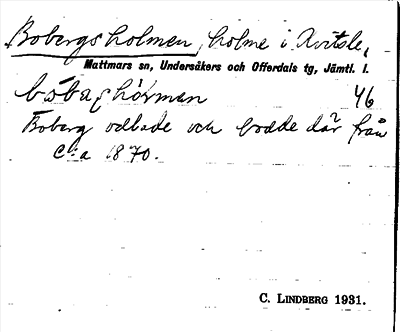 Bobergsholmen, holme i Kvitsle,
Mattmars sn, Undersåkers och Offerdals tg, Jämtl. l.
46
Boberg odlade och bodde där från
c:a 1870.
C. LINDBERG 1931.